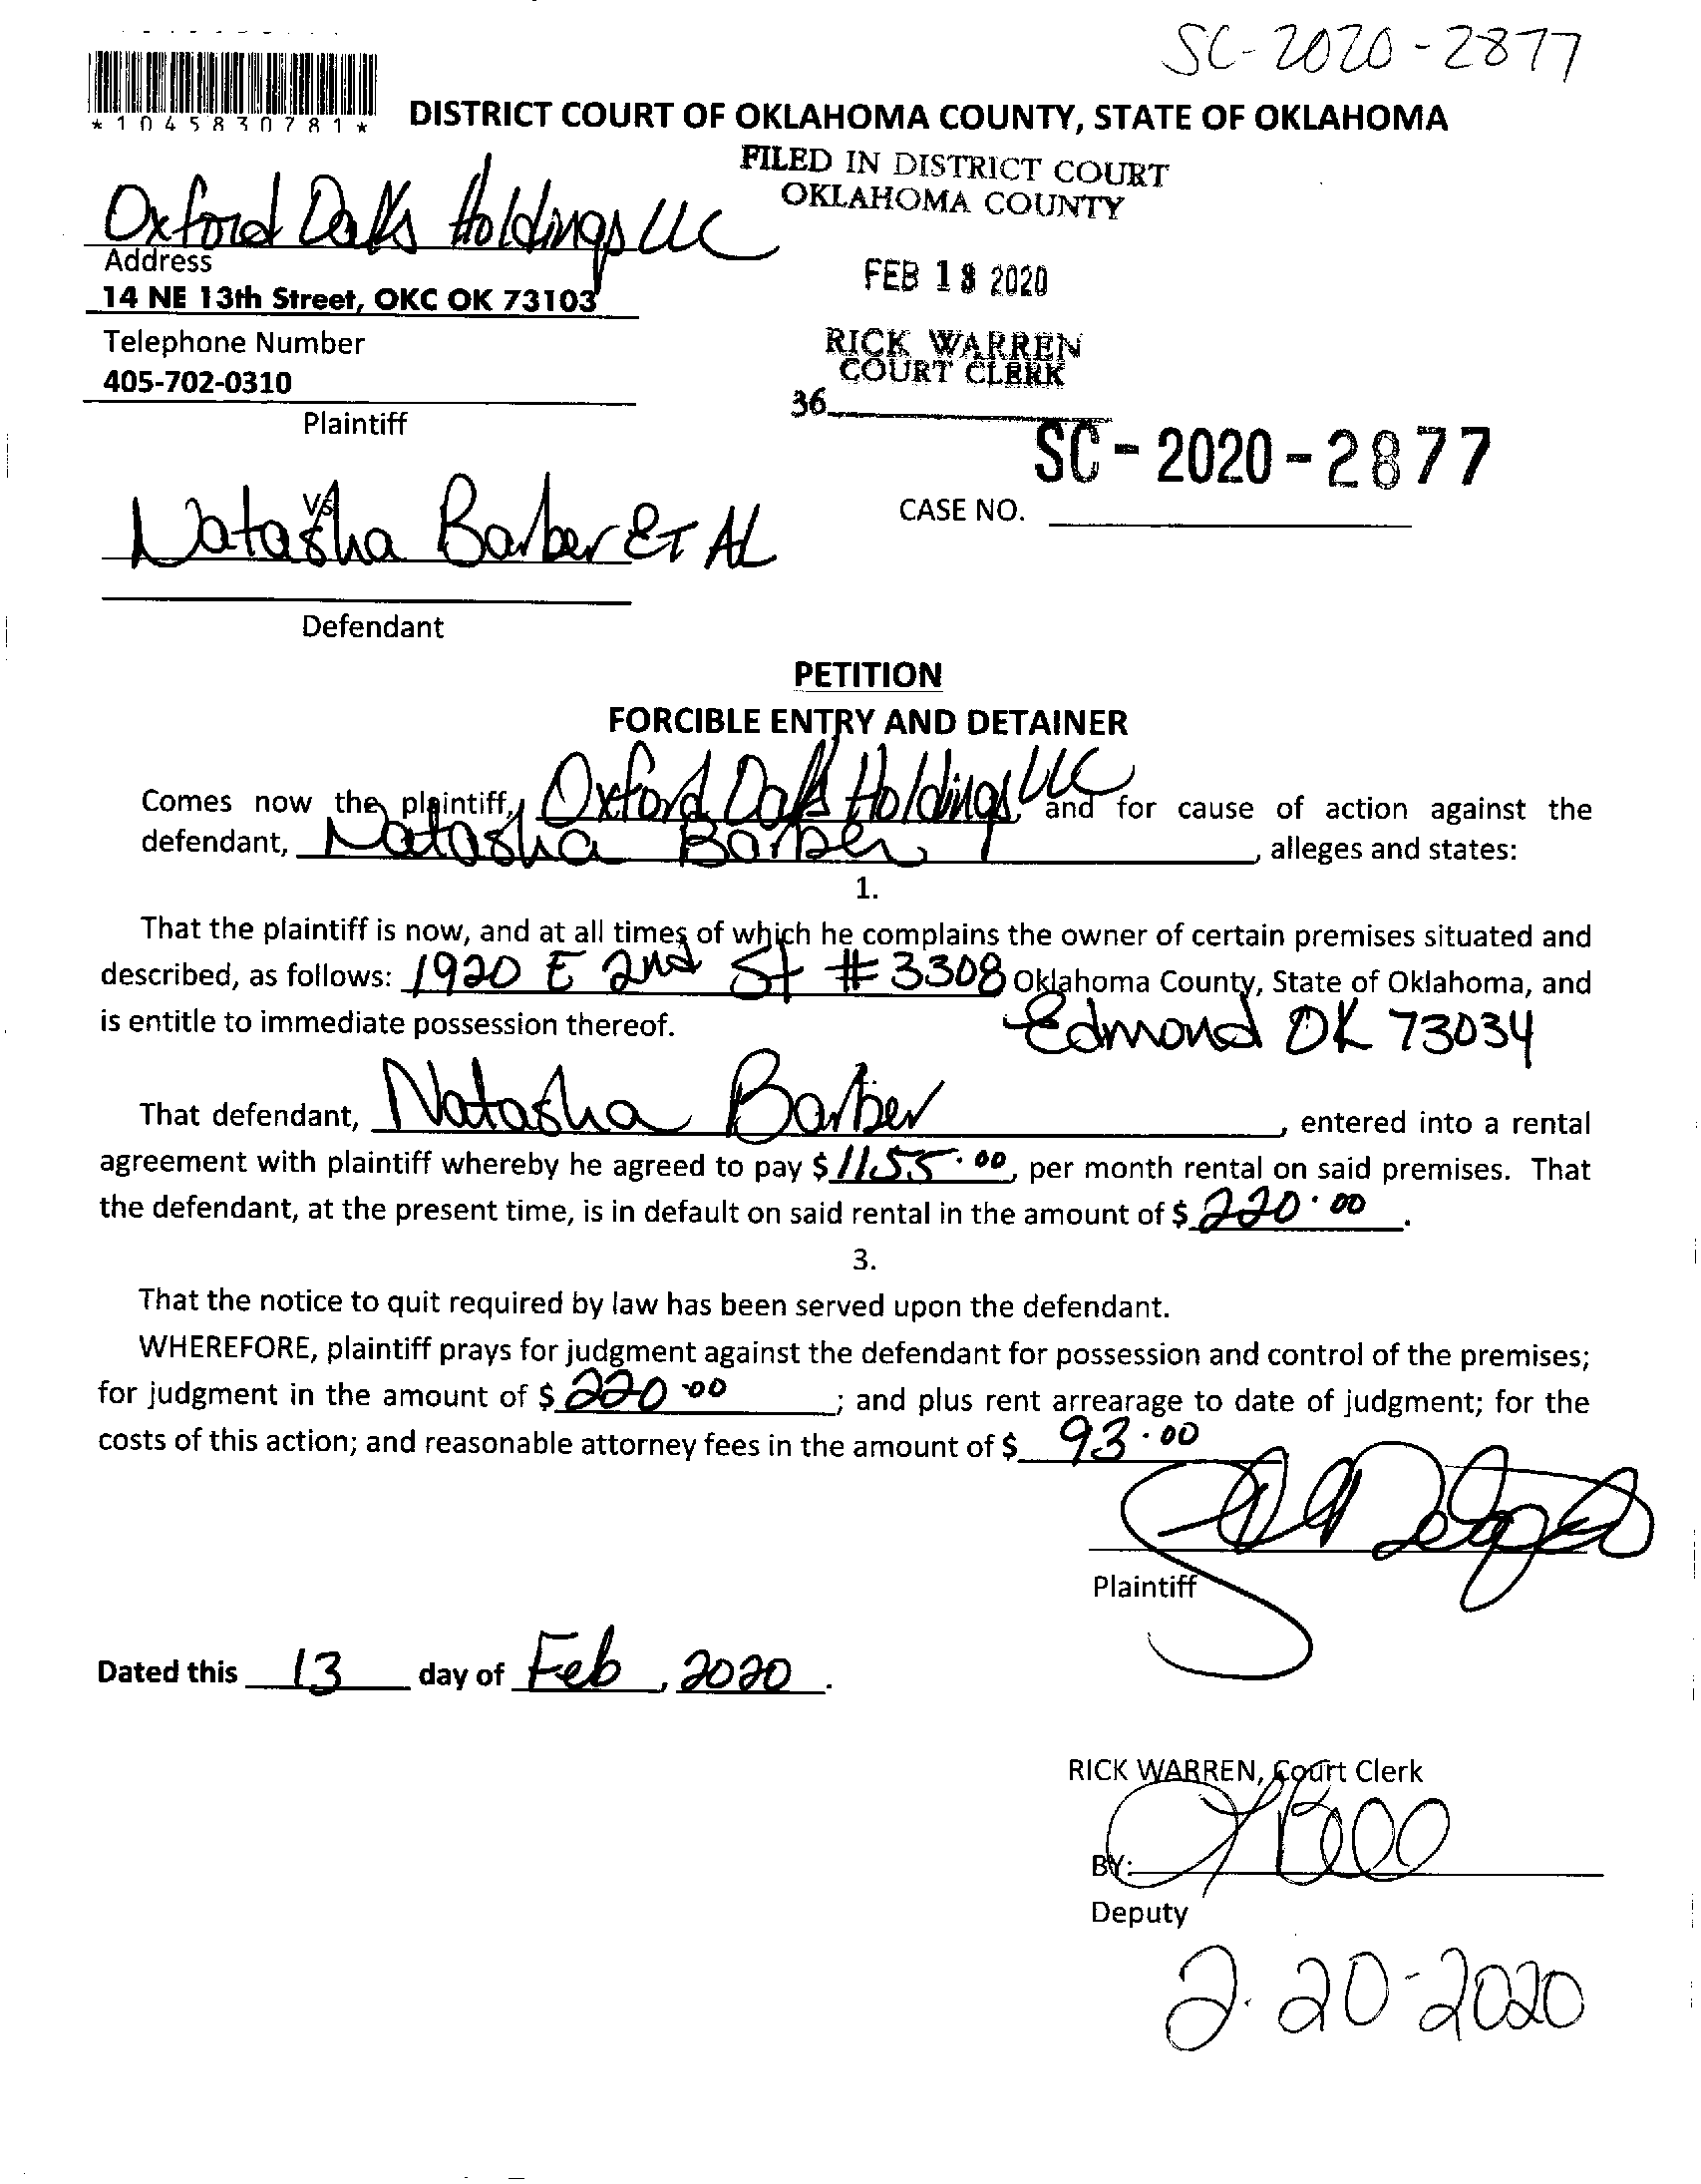 SC-2020-2877
*1045830781*
DISTRICT COURT OF OKLAHOMA COUNTY, STATE OF OKLAHOMA
FILED IN DISTRICT COURT
OKLAHOMA COUNTY
Oxford Oaks Holdings LLC
Address
14 NE 13th Street, OKC OK 73103
FEB 18 2020
Telephone Number
405-702-0310
RICK WARREN
COURT CLERK
36
Plaintiff
SC-2020-2877
CASE NO.
VS
Natasha Barber ET AL
Defendant
PETITION
FORCIBLE ENTRY AND DETAINER
Comes now the plaintiff, Oxford Oaks Holdings LLC, and for cause of action against the
defendant, Natasha Barber, alleges and states:
1.
That the plaintiff is now, and at all times of which he complains the owner of certain premises situated and
described, as follows: 1920 E 2nd St #3308 Oklahoma County, State of Oklahoma, and
is entitle to immediate possession thereof. Edmond OK 73034
That defendant, Natasha Barber, entered into a rental
agreement with plaintiff whereby he agreed to pay $1155.00, per month rental on said premises. That
the defendant, at the present time, is in default on said rental in the amount of $220.00.
3.
That the notice to quit required by law has been served upon the defendant.
WHEREFORE, plaintiff prays for judgment against the defendant for possession and control of the premises;
for judgment in the amount of $220.00; and plus rent arrearage to date of judgment; for the
costs of this action; and reasonable attorney fees in the amount of $93.00
Plaintiff
Dated this 13 day of Feb, 2020.
RICK WARREN, Court Clerk
BY:
Deputy
2-20-2020